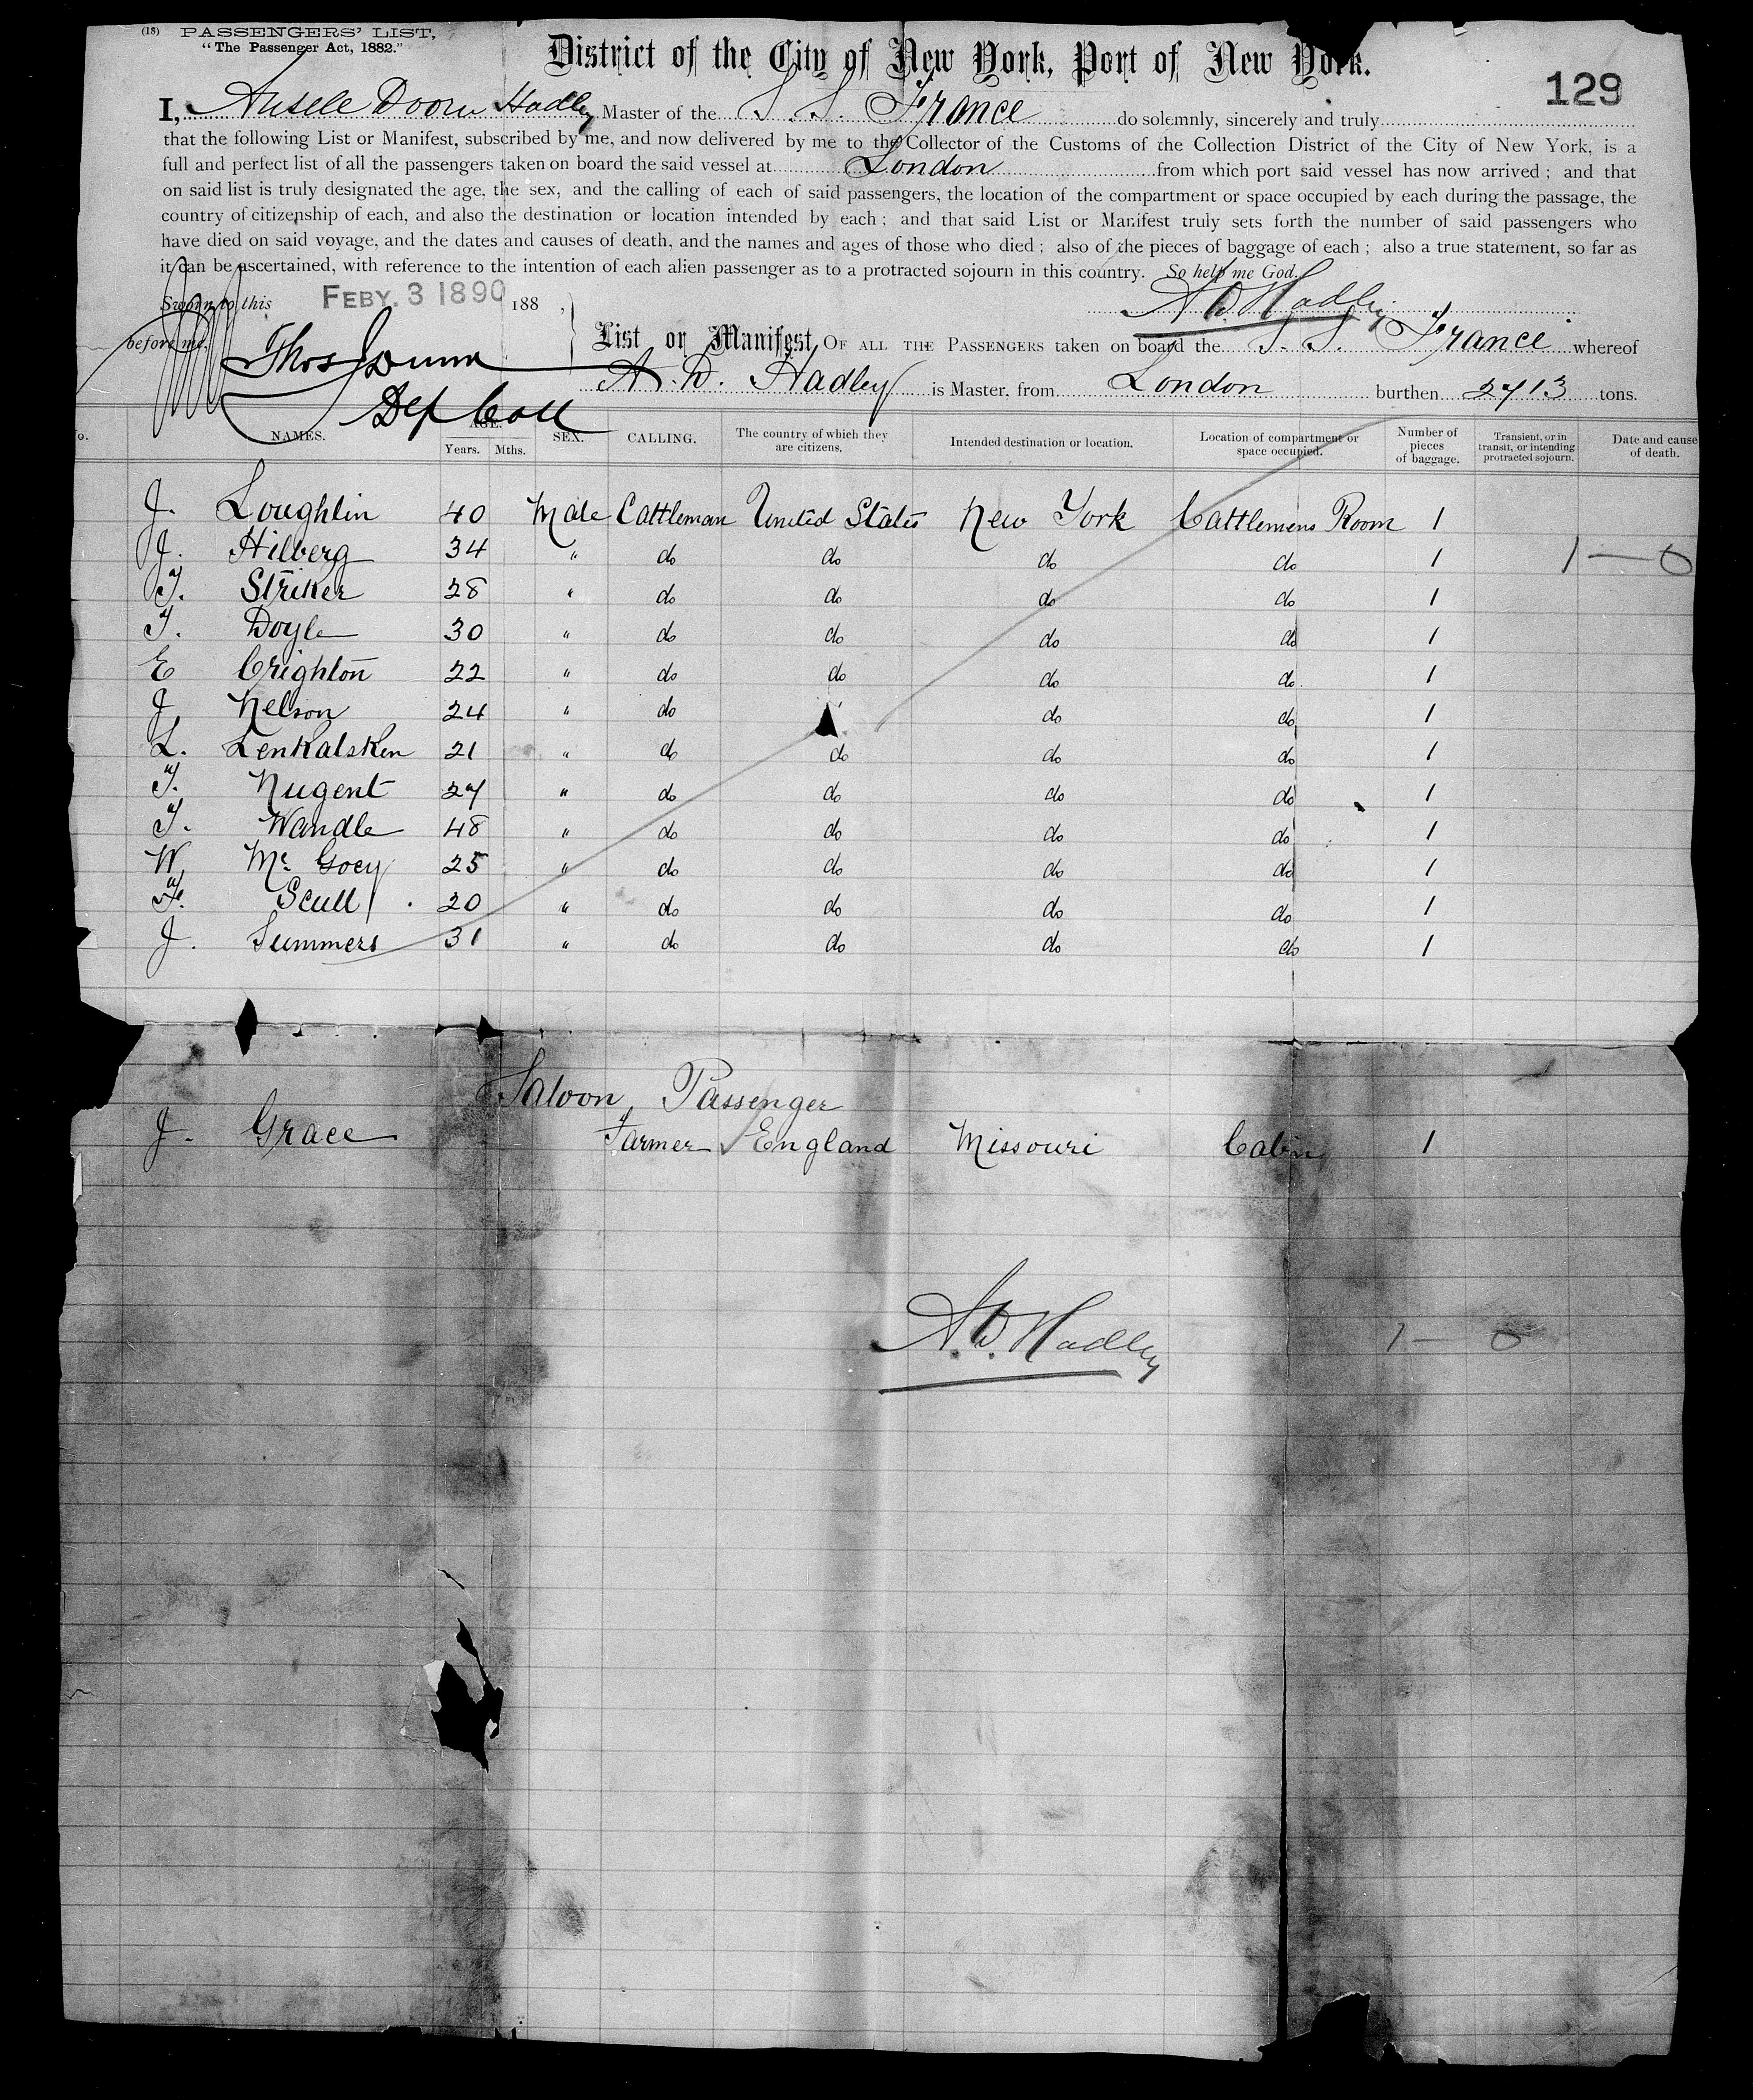 (18) PASSENGERS' LIST,
"The Passenger Act, 1882."
District of the City of New York, Port of New York.
129
I, Hadley Master of the S. S. France do solemnly, sincerely and truly
that the following List or Manifest, subscribed by me, and now delivered by me to the Collector of the Customs of the Collection District of the City of New York, is a
full and perfect list of all the passengers taken on board the said vessel at London from which port said vessel has now arrived; and that
on said list is truly designated the age, the sex, and the calling of each of said passengers, the location of the compartment or space occupied by each during the passage, the
country of citizenship of each, and also the destination or location intended by each; and that said List or Manifest truly sets forth the number of said passengers who
have died on said voyage, and the dates and causes of death, and the names and ages of those who died; also of the pieces of baggage of each; also a true statement, so far as
it can be ascertained, with reference to the intention of each alien passenger as to a protracted sojourn in this country. So help me God.
Sworn to this FEBY. 3 1890 188 , A D Hadley
before me, Thos
Dep Coll
List or Manifest, OF ALL THE PASSENGERS taken on board the S. S. France whereof
A. D. Hadley is Master, from London burthen 2713 tons.
o. NAMES. AGE. Years. Mths. SEX. CALLING. The country of which they are citizens. Intended destination or location. Location of compartment or space occupied. Number of pieces of baggage. Transient, or in transit, or intending protracted sojourn. Date and cause of death.
J. Loughlin 40 Male Cattleman United States New York Cattlemens Room 1
J. Hilberg 34 " do do do do 1 1 — 0
T. Striker 28 " do do do do 1
T. Doyle 30 " do do do do 1
E Crighton 22 " do do do do 1
J. Nelson 24 " do do do 1
L. Lenkalsken 21 " do do do do 1
T. Nugent 27 " do do do do 1
T. Wandle 48 " do do do do 1
W Mc Goey 25 " do do do do 1
F. Scull 20 " do do do do 1
J. Summers 31 " do do do do 1
Saloon Passenger
J. Grace Farmer England Missouri Cabin 1
A. D. Hadley
1 — 0